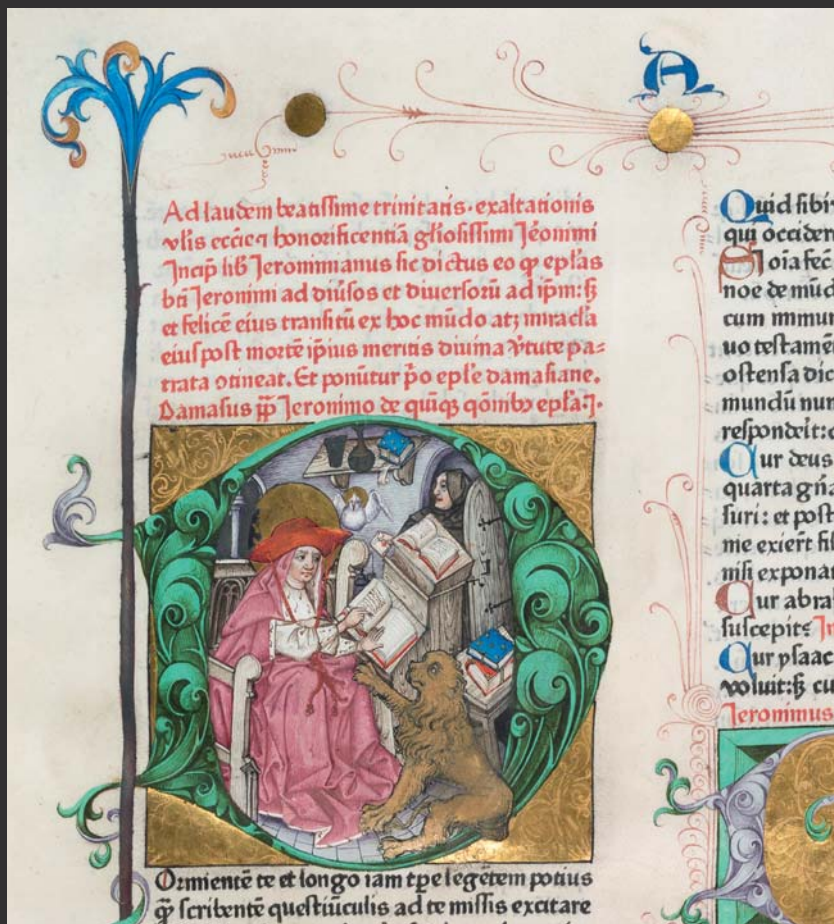 A
Ad laudem beatissime trinitatis · exaltationis
vlis eccĩe ⁊ honorificentiã gl'iosissimi Jẽonimi
Incip̃ lib̃ Jeronimianus sic dictus eo ꝙ ep̃las
bti Jeronimi ad diũsos et diuersorũ ad ip̃m: ꝫ
et felicẽ eius transitũ ex hoc mũdo atꝫ miracła
eius post mortẽ ip̃ius meritis diuina ỹtute pa-
trata ↄtineat. Et ponũtur p̃o ep̃le damasiane.
Damasus pp̃ Jeronimo de quĩqꝫ qõnibꝰ ep̃la ·j·
Dormientẽ te et longo iam tp̃e legẽtem potius
ꝙ̃ scribentẽ questiũculis ad te missis excitare
Quid sibi
qui occider
Si oĩa fec
noe de mũd
cum immun
uo testamẽ
ostensa dic
mundũ nun
respondeit: c
Cur deus
quarta gñã
suri: et post
me exiert̃ fil
nisi exponan
Cur abra
suscepit: In
Cur ysaac
voluit: ꝫ cu
Jeronimus